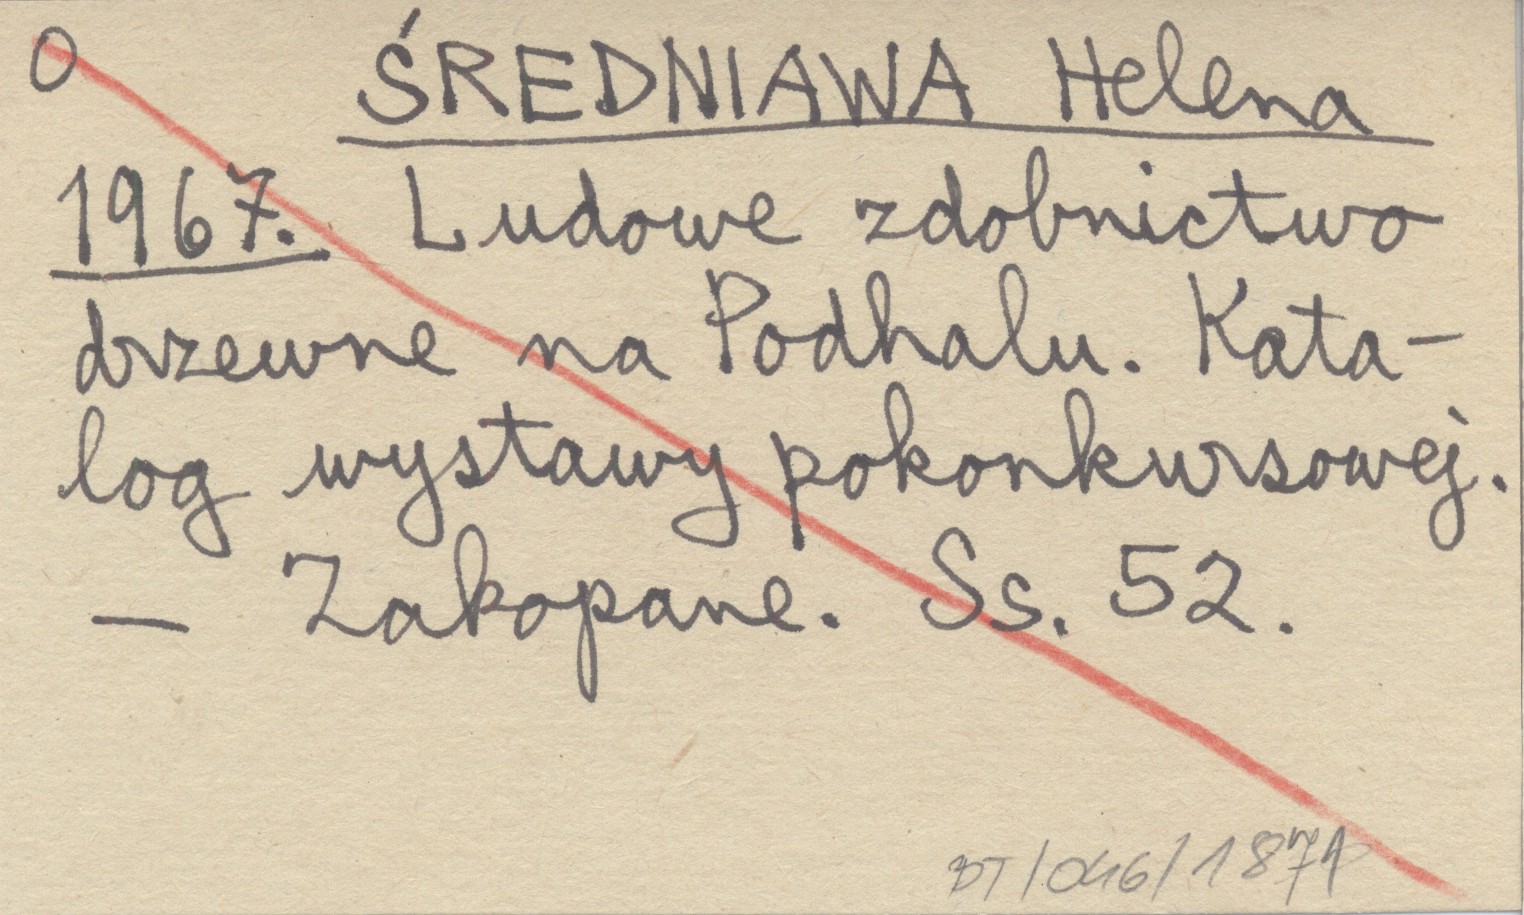 O ŚREDNIAWA Helena
1967. Ludowe zdobnictwo
drzewne na Podhalu. Kata-
log wystawy pokonkursowej.
— Zakopane. Ss. 52.
BT/046/1871